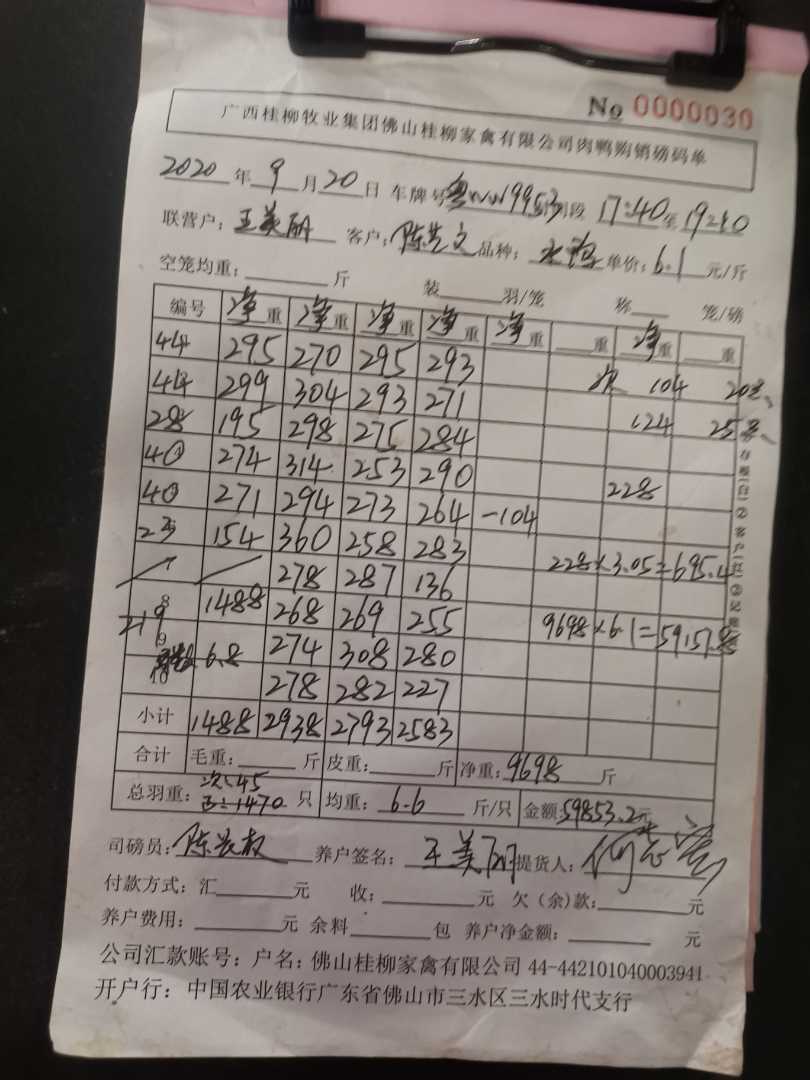 No 0000030
广西桂柳牧业集团佛山桂柳家禽有限公司肉鸭购销磅码单
2020 年 9 月 20 日 车牌号 粤W19953 时间段 17:40 至 19:40
联营户：王美丽 客户：陈艺文 品种： 单价：6.1 元/斤
空笼均重： 斤 装 羽/笼 称 笼/磅
编号 净重 净重 净重 净重 净重 重 净重 重
44 295 270 295 293 次 104 20
44 299 304 293 271 124 25
28 195 298 275 284
40 274 314 253 290 228
40 271 294 273 264 -104
23 154 360 258 283
7 278 287 136 228×3.05=695.4
8 1488 268 269 255
219 9 9698×6.1=59157.8
6.8 274 308 280
10 278 282 227
小计 1488 2938 2793 2583
合计 毛重： 斤 皮重： 斤 净重：9698 斤
次：45
总羽重： 正：1470 只 均重：6.6 斤/只 金额 59853.2元
司磅员：陈 权 养户签名：王美丽 提货人：
付款方式：汇 元 收： 元 欠（余）款： 元
养户费用： 元 余料 包 养户净金额： 元
公司汇款账号：户名：佛山桂柳家禽有限公司 44-442101040003941
开户行：中国农业银行广东省佛山市三水区三水时代支行